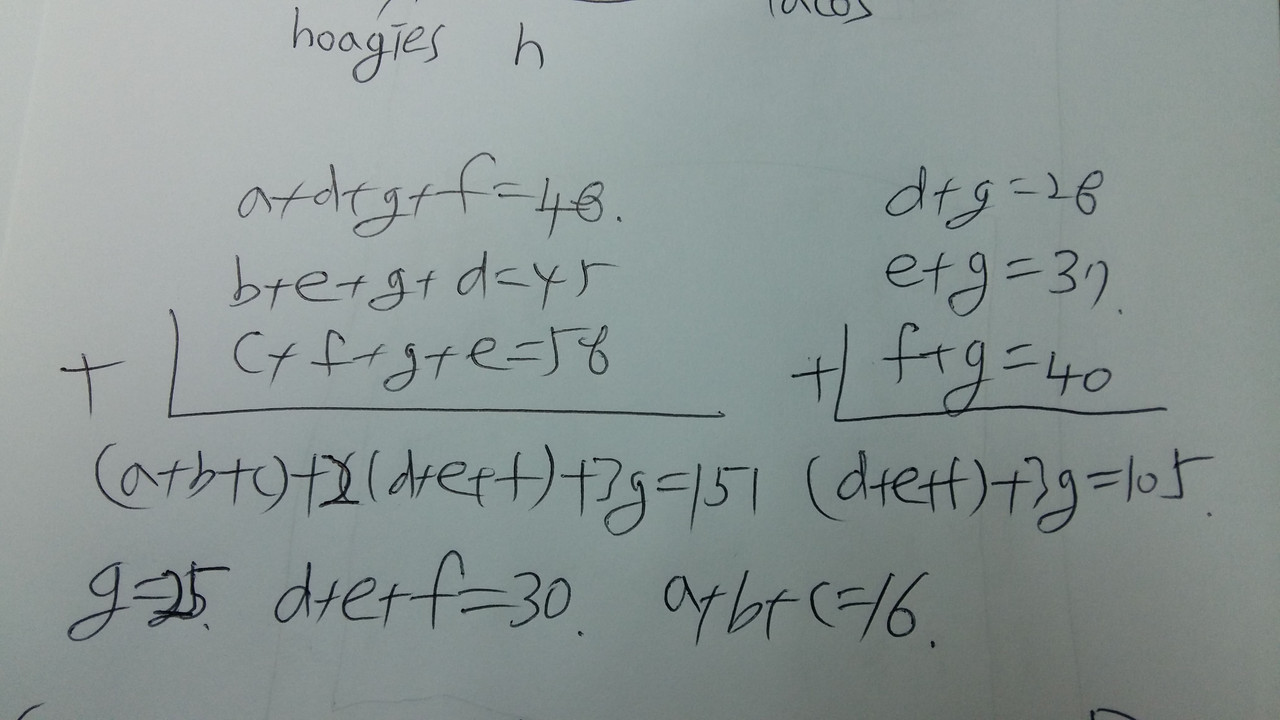 hoagies h tacos
a+d+g+f=48.
b+e+g+d=45
+ c+f+g+e=58
(a+b+c)+2(d+e+f)+3g=151
d+g=28
e+g=37.
+ f+g=40
(d+e+f)+3g=105.
g=25. d+e+f=30. a+b+c=16.